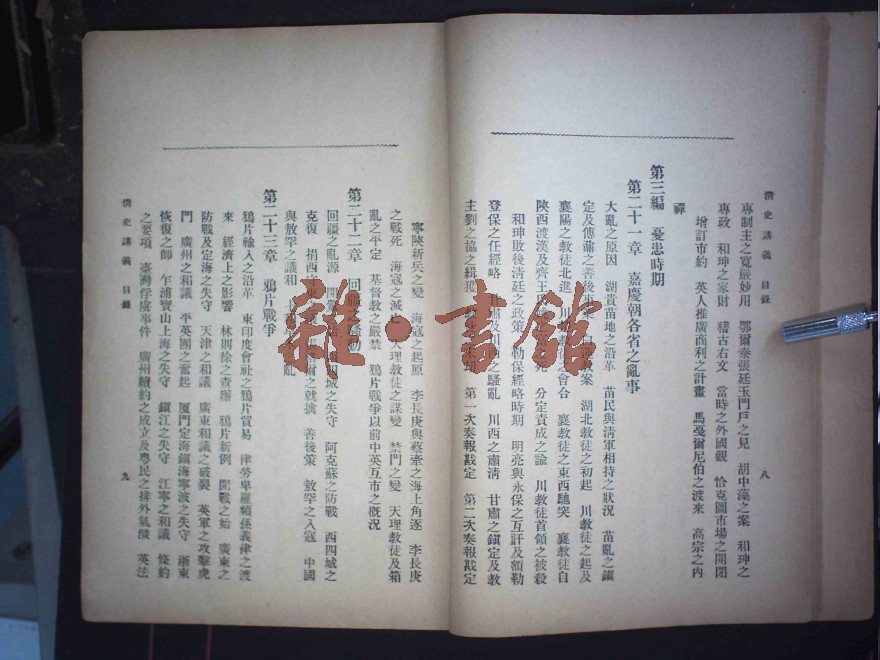 清史講義 目錄 八
專制主之寬嚴妙用 鄂爾泰張廷玉門戶之見 胡中藻之案 和珅之
專政 和珅之家財 稽古右文 當時之外國觀 恰克圖市場之開閉
增訂市約 英人推廣商利之計畫 馬憂爾尼伯之渡來 高宗之內
禪
第三編 憂患時期
第二十一章 嘉慶朝各省之亂事
大亂之原因 湖貴苗地之沿革 苗民與清軍相持之狀況 苗亂之鎭
定及傅鼐之善後 教案 湖北教徒之初起 川教徒之起及
襄陽之教徒北進 川 之會合 襄教徒之東西馳突 襄教徒自
陝西渡漢及齊王氏 死 分定責成之論 川教徒首領之被殺
和珅敗後清廷之政策 勒保經略時期 明亮與永保之互訐及額勒
登保之任經略 甘肅及川西之騷亂 川西之肅清 甘肅之鎭定及教
主劉之協之緝獲 第一次奏報戡定 第二次奏報戡定
寧陝新兵之變 海寇之起原 李長庚與蔡牽之海上角逐 李長庚
之戰死 海寇之滅 天理教徒之謀變 禁門之變 天理教徒及箱
亂之平定 基督教之嚴禁 鴉片戰爭以前中英互市之概況
第二十二章 回疆之騷動
回疆之亂源 開 四城之失守 阿克蘇之防戰 西四城之
克復 捐西守東 爾之就擒 善後策 敖罕之入寇 中國
與敖罕之議和 亂
第二十三章 鴉片戰爭
鴉片輸入之沿革 東印度會社之鴉片貿易 律勞卑羅頻孫義律之渡
來 經濟上之影響 林則徐之查辦 鴉片新例 開戰之始 廣東之
防戰及定海之失守 天津之和議 廣東和議之破裂 英軍之攻擊虎
門 廣州之和議 平英團之奮起 厦門定海鎭海寧波之失守 浙東
恢復之師 乍浦寶山上海之失守 鎭江之失守 江寧之和議 條約
之要項 臺灣俘虜事件 廣州續約之成立及粵民之排外氣燄 英法
清史講義 目錄 九
雜·書館